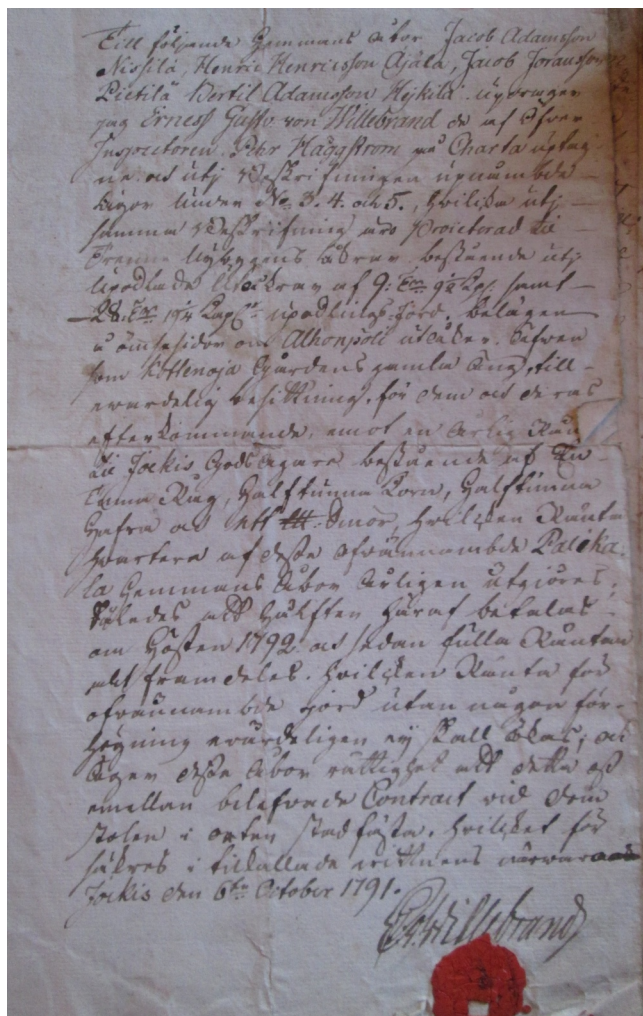 Till följande Hemmans Åbor Jacob Adamsson
Nissilä, Henric Henricsson Äjälä, Jacob Joransson
Pietilä Bertil Adamsson Hejkilä updrager
jag Ernest Gustav von Willebrand de af Öfver
Inspectoren Pehr Häggström på Charta uptag
ne och utj Beskrifningen upnämbde
ägor under No 3. 4. och 5., hvilcka utj
samma Beskrifning äro Projecterad till
Trenne Nybyggens Åkrar bestående utj
Upodlade Utåkrar af 9: samt
28. upodlings Jord, belägen
å ömse sidor om Alhonpoli utåker
som Kottenoja Gårdens gamla Äng, till
evärdelig besittning, för dem och deras
efterkommande, emot en Årlig
till Jockis Gods ägare bestående af En
Tunna Råg, Half tunna Korn, Half tunna
Hafra och ett Smör, hvilcken Ränta
hvartera af desse ofvannämbde Palika
la Hemmans Åbor Årligen utgiöres,
således att Hälften häraf betalas
om Hösten 1792 och sedan fulla Räntan
alt framdeles. hvilcken Ränta för
ofvannämbde jord utan någon för-
högning evärdeligen ej skall ökas; och
äger desse Åbor rättighet att detta oss
emellan belefvade Contract vid Dom
stolen i orten stadfästa, hvilcket för
säkras i tilkallade vittnens närvaro
Jockis den 6te October 1791.
EGvWillebrand